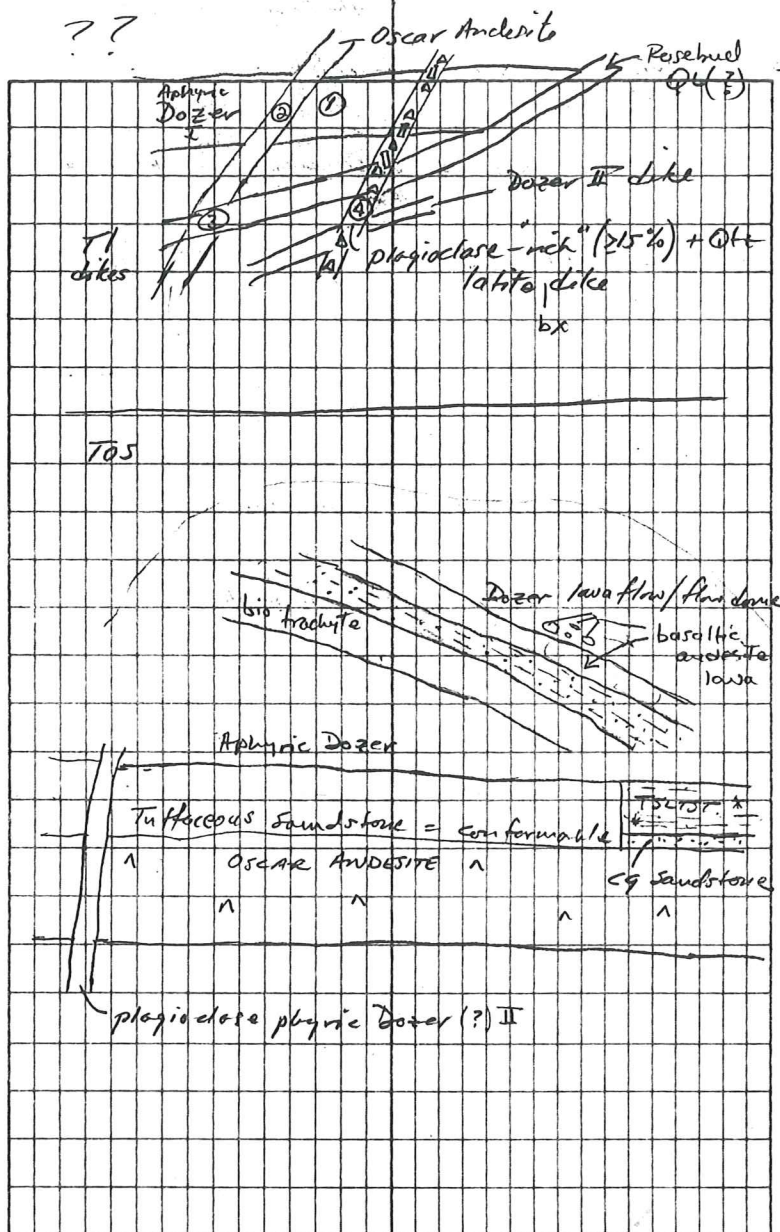 ??
Oscar Andesite
Rosebud
QL(?)
Aphyric
Dozer
I
①
②
③
④
Dozer II dike
Tl
dikes
plagioclase-"rich" (≥15%) + Qtz
latite dike
bx
TOS
Dozer lava flow/flow dome
bio trachyte
basaltic
andesite
lava
Aphyric Dozer
Tuffaceous Sandstone = conformable
TSLTST *
OSCAR ANDESITE
cg sandstone
plagioclase phyric Dozer (?) II